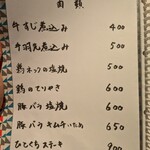 肉類
牛すじ煮込み 400
牛胴元煮込み 500
鶏ネックの塩焼 500
鶏のてりやき 600
豚バラ塩焼 600
豚バラキムチいため 650
ひとくちステーキ 900